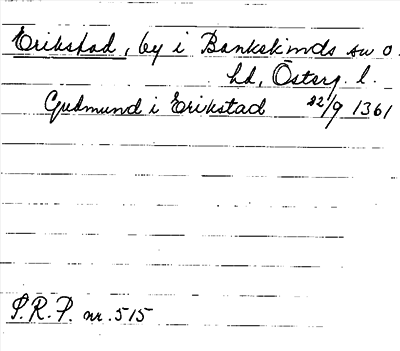 Erikstad, by i Bankekinds sn o.
hd, Österg. l.
Gudmund i Erikstad 22/9 1361
S.R.P. nr. 515